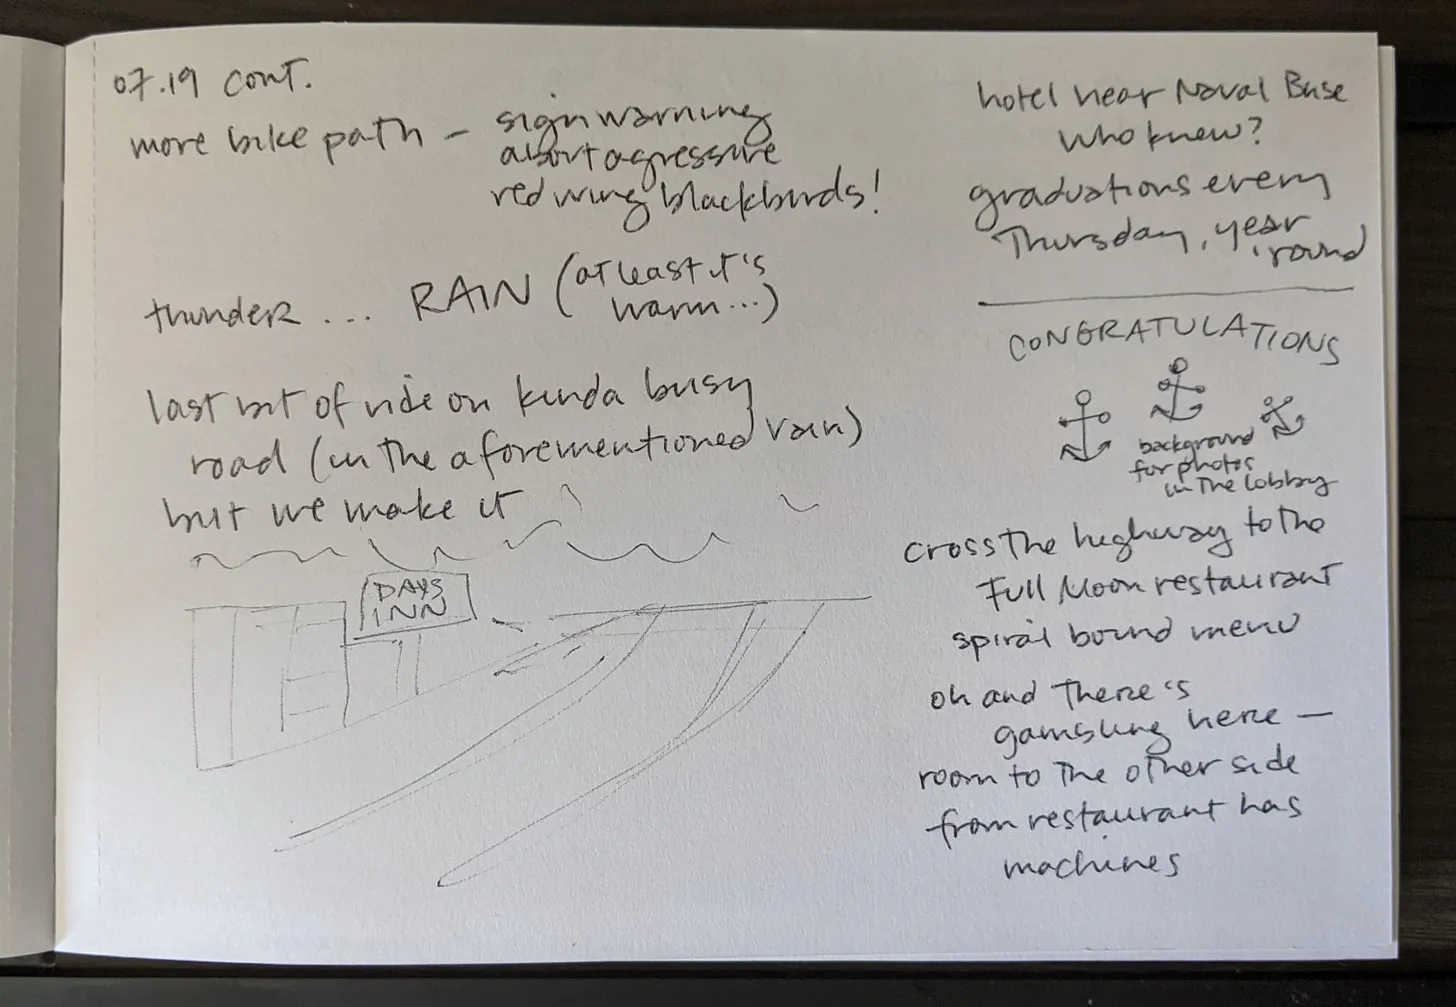 07.19 cont.
more bike path – sign warning
about agressive
red wing blackbirds!
thunder ... RAIN (at least it's
warm...)
last bit of ride on kinda busy
road (in the aforementioned rain)
but we make it
DAYS
INN
hotel near Naval Base
who knew?
graduations every
Thursday, year
'round
CONGRATULATIONS
background
for photos
in the lobby
cross the highway to the
Full Moon restaurant
spiral bound menu
oh and there's
gambling here –
room to the other side
from restaurant has
machines